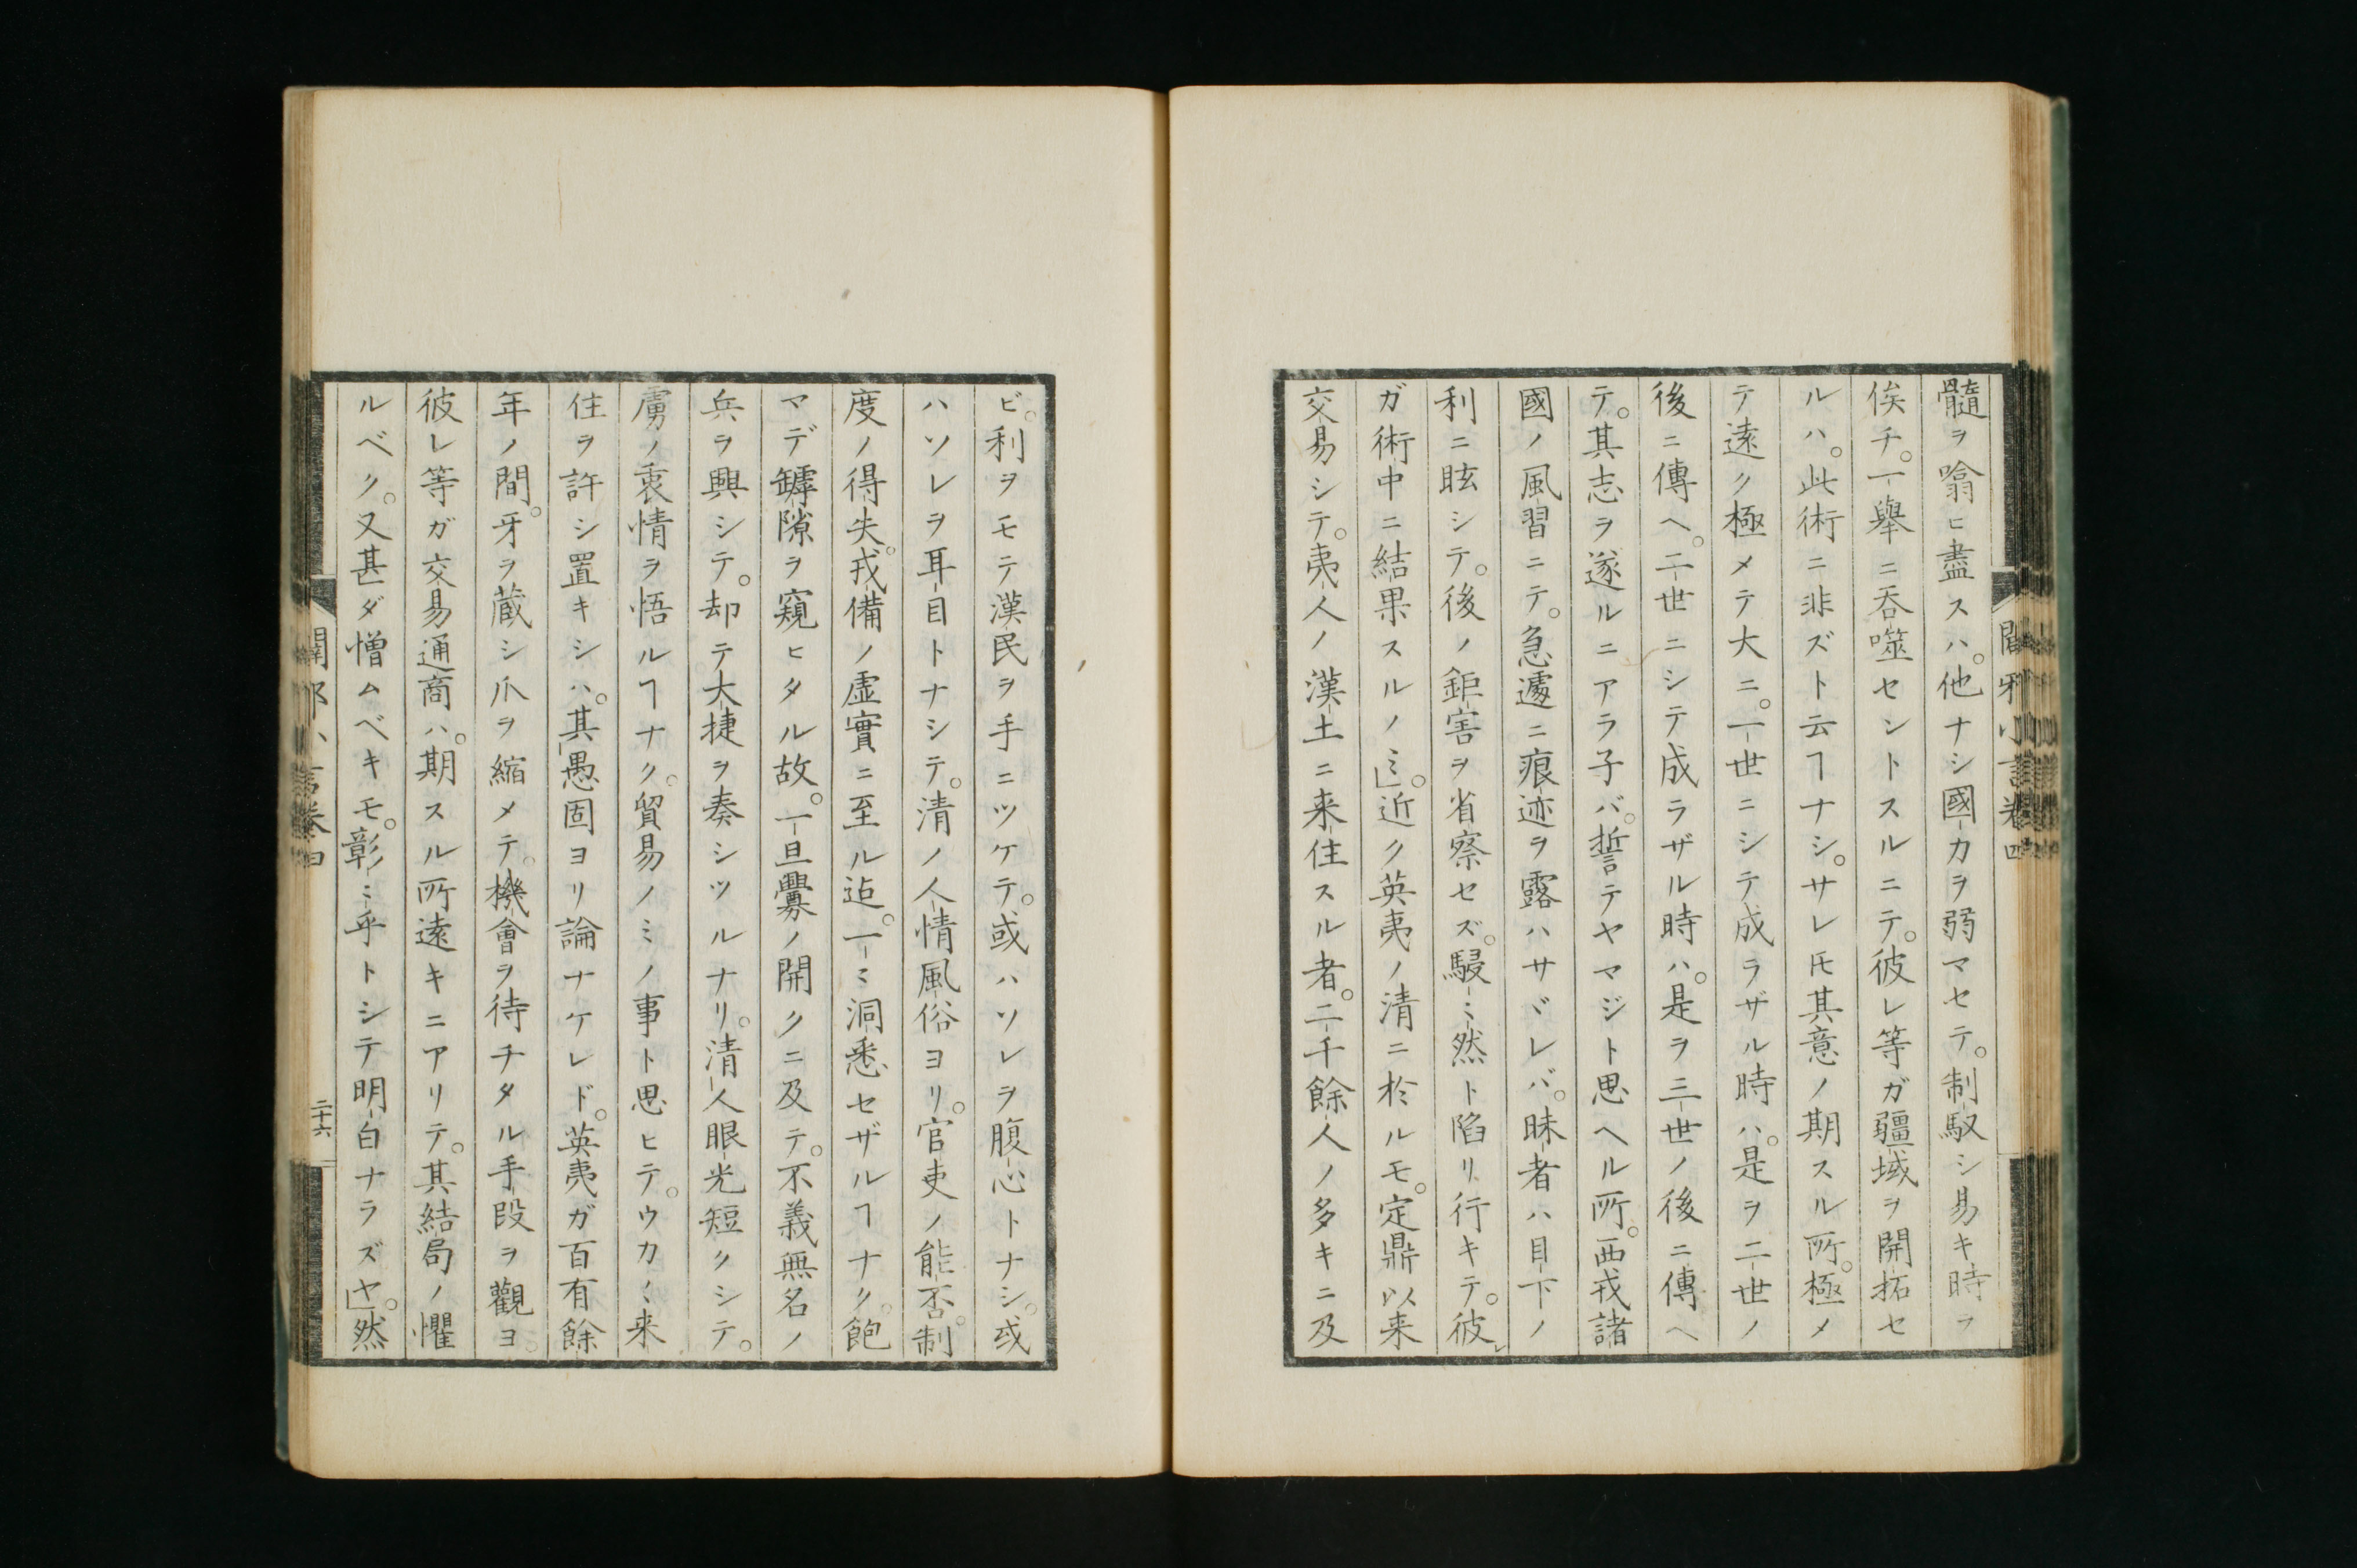 髓ヲ噏ヒ盡スハ。他ナシ國カヲ弱マセテ。制馭シ易キ時ヲ
俟チ。一舉ニ吞噬セントスルニテ。彼レ等ガ疆域ヲ開拓セ
ルハ。此術ニ非ズト云ヿナシ。サレ𪜈其意ノ期スル所。極メ
テ遠ク極メテ大ニ。一世ニシテ成ラザル時ハ。是ヲ二世ノ
後ニ傳ヘ。二世ニシテ成ラザル時ハ。是ヲ三世ノ後ニ傳ヘ
テ。其志ヲ遂ルニアラ子バ。誓テヤマジト思ヘル所。西戎諸
國ノ風習ニテ。急遽ニ痕迹ヲ露ハサヾレバ。昧者ハ目下ノ
利ニ眩シテ。後ノ鉅害ヲ省察セズ。駸〻然ト陷リ行キテ。彼レ
ガ術中ニ結果スルノミ」。近ク英夷ノ清ニ於ルモ。定鼎以来
交易シテ。夷人ノ漢土ニ来住スル者。二千餘人ノ多キニ及
闢邪小言卷四
ビ。利ヲモテ漢民ヲ手ニツケテ。或ハソレヲ腹心トナシ。或
ハソレヲ耳目トナシテ。清ノ人情風俗ヨリ。官吏ノ能否。制
度ノ得失。戎備ノ虛實ニ至ル迠。一〻洞悉セザルヿナク。飽
マデ罅隙ヲ窺ヒタル故。一旦釁ノ開クニ及テ。不義無名ノ
兵ヲ興シテ。却テ大捷ヲ奏シツルナリ。清人眼光短クシテ。
虜ノ衷情ヲ悟ルヿナク。貿易ノミノ事ト思ヒテ。ウカ〳〵来
住ヲ許シ置キシハ。其愚固ヨリ論ナケレド。英夷ガ百有餘
年ノ間。牙ヲ蔵シ爪ヲ縮メテ。機會ヲ待チタル手段ヲ觀ヨ。
彼レ等ガ交易通商ハ。期スル所遠キニアリテ。其結局ノ懼
ルベク。又甚ダ憎ムベキモ。彰〻乎トシテ明白ナラズヤ」。然
闢邪小言卷四
二十六